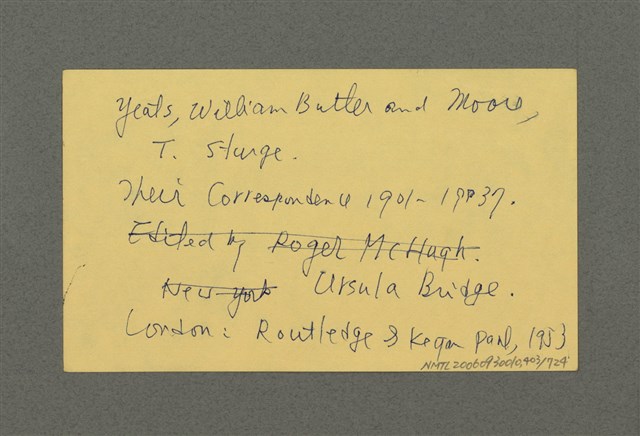 Yeats, William Butler and Moore,
T. Sturge.
Their Correspondence 1901-1937.
Edited by Roger McHugh.
New York Ursula Bridge.
London: Routledge & Kegan Paul, 1953
NMTL20060930010,403/724